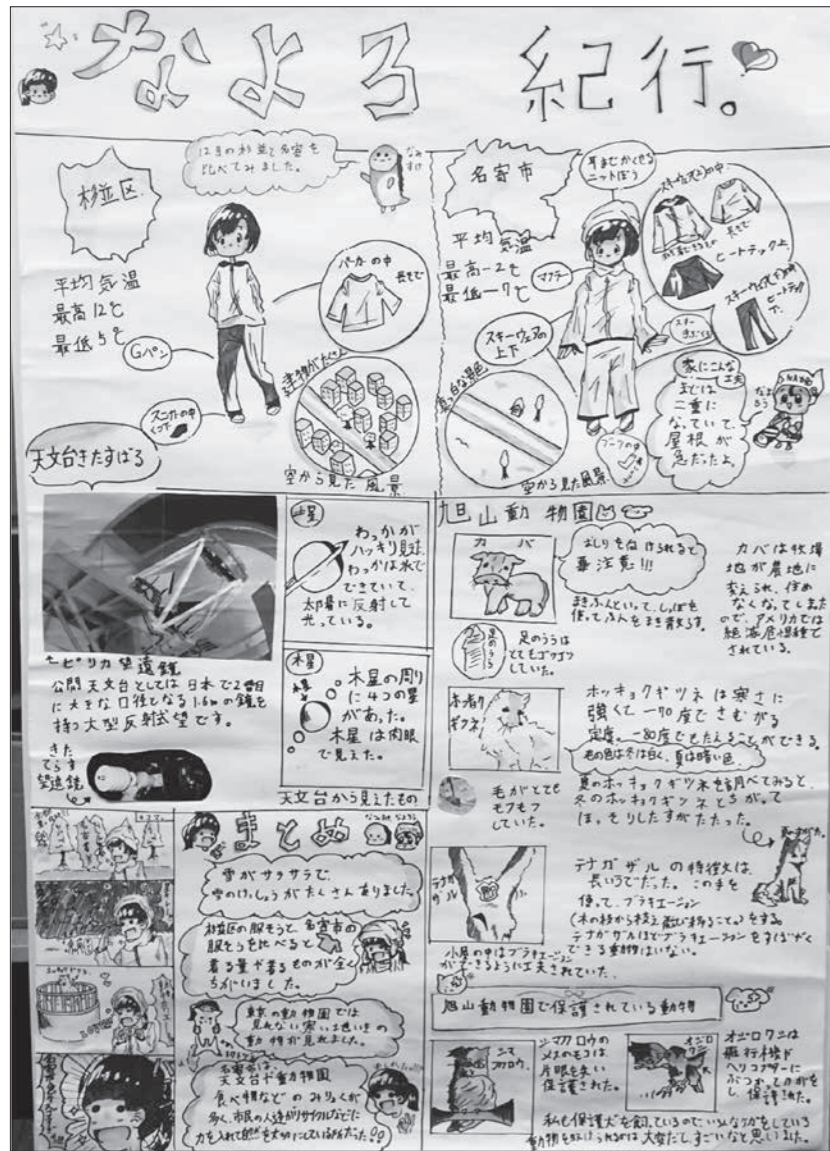 なよろ 紀行。
12月の杉並と名寄を
比べてみました。
なみすけ
杉並区
平均気温
最高12℃
最低5℃
パーカーの中
長そで
Gパン
スニーカーの中
建物がたくさん
空から見た風景
名寄市
平均気温
最高-2℃
最低-7℃
耳までかくせる
ニットぼう
マフラー
スキーウェア(上)の中
長そで
ヒートテック上
スキーウェア(下)の中
ヒートテック
下
スキー
手ぶくろ
スキーウェアの
上下
ブーツの中
真っ白な景色
空から見た風景
家にこんな
工夫
まどは
二重に
なっていて、
屋根が
急だったよ。
なよろう
天文台きたすばる
ピリカ望遠鏡
公開天文台としては日本で2番目
に大きな口径となる1.6mの鏡を
持つ大型反射式望です。
きた
てらす
望遠鏡
土星
わっかが
ハッキリ見えた
わっかは氷で
できていて、
太陽に反射して
光っている。
木星
木星
木星の周り
に4つの星
があった。
木星は肉眼
で見えた。
天文台から見えたもの
旭山動物園
カバ
おしりを向けられると
要注意!!!
まきふんといって、しっぽを
使ってふんをまき散らす。
足のうら
足のうらは
とてもゴツゴツ
していた。
カバは牧場
地が農地に
変えられ、住め
なくなってしまった
ので、アメリカでは
絶滅危惧種と
されている。
ホッキョク
ギツネ
ホッキョクギツネは寒さに
強くて-70度でさむがる
程度。-80度でもたえることができる。
毛の色は冬は白く、夏は暗い色
毛がとても
モフモフ
していた。
夏のホッキョクギツネを調べてみると、
冬のホッキョクギツネとちがって
ほっそりしたすがただった。
テナガ
ザル
テナガザルの特徴は、
長いうでだった。この手を
使って、ブラキエーション
(木の枝から枝え飛び移ること。)をする。
テナガザルほどブラキエーションをすばやく
できる動物はいない。
小屋の中はブラキエーション
ができるように工夫されていた。
旭山動物園で保護されている動物
シマ
フクロウ
シマフクロウの
メスのモコは
片眼を失い
保護された。
オジロ
ワシ
オジロワシは
飛行機や
ヘリコプターに
ぶつかってケガを
し、保護された。
私も保護犬を飼っているのでいろんなケガをしている
動物を助けられるのは大変だし、すごいなと思いました。
まとめ
雪がサラサラで、
雪のけっしょうがたくさんありました
杉並区の服そうと名寄市の
服そうを比べると
着る量や着るものが全く
ちがいました。
東京の動物園では
見れない寒い地いきの
動物が見れました。
名寄市は、
天文台や動物園
食べ物などのみりょくが
多く、市民の人達がリサイクルなどに
力を入れて自然を大切にしている所だった!!